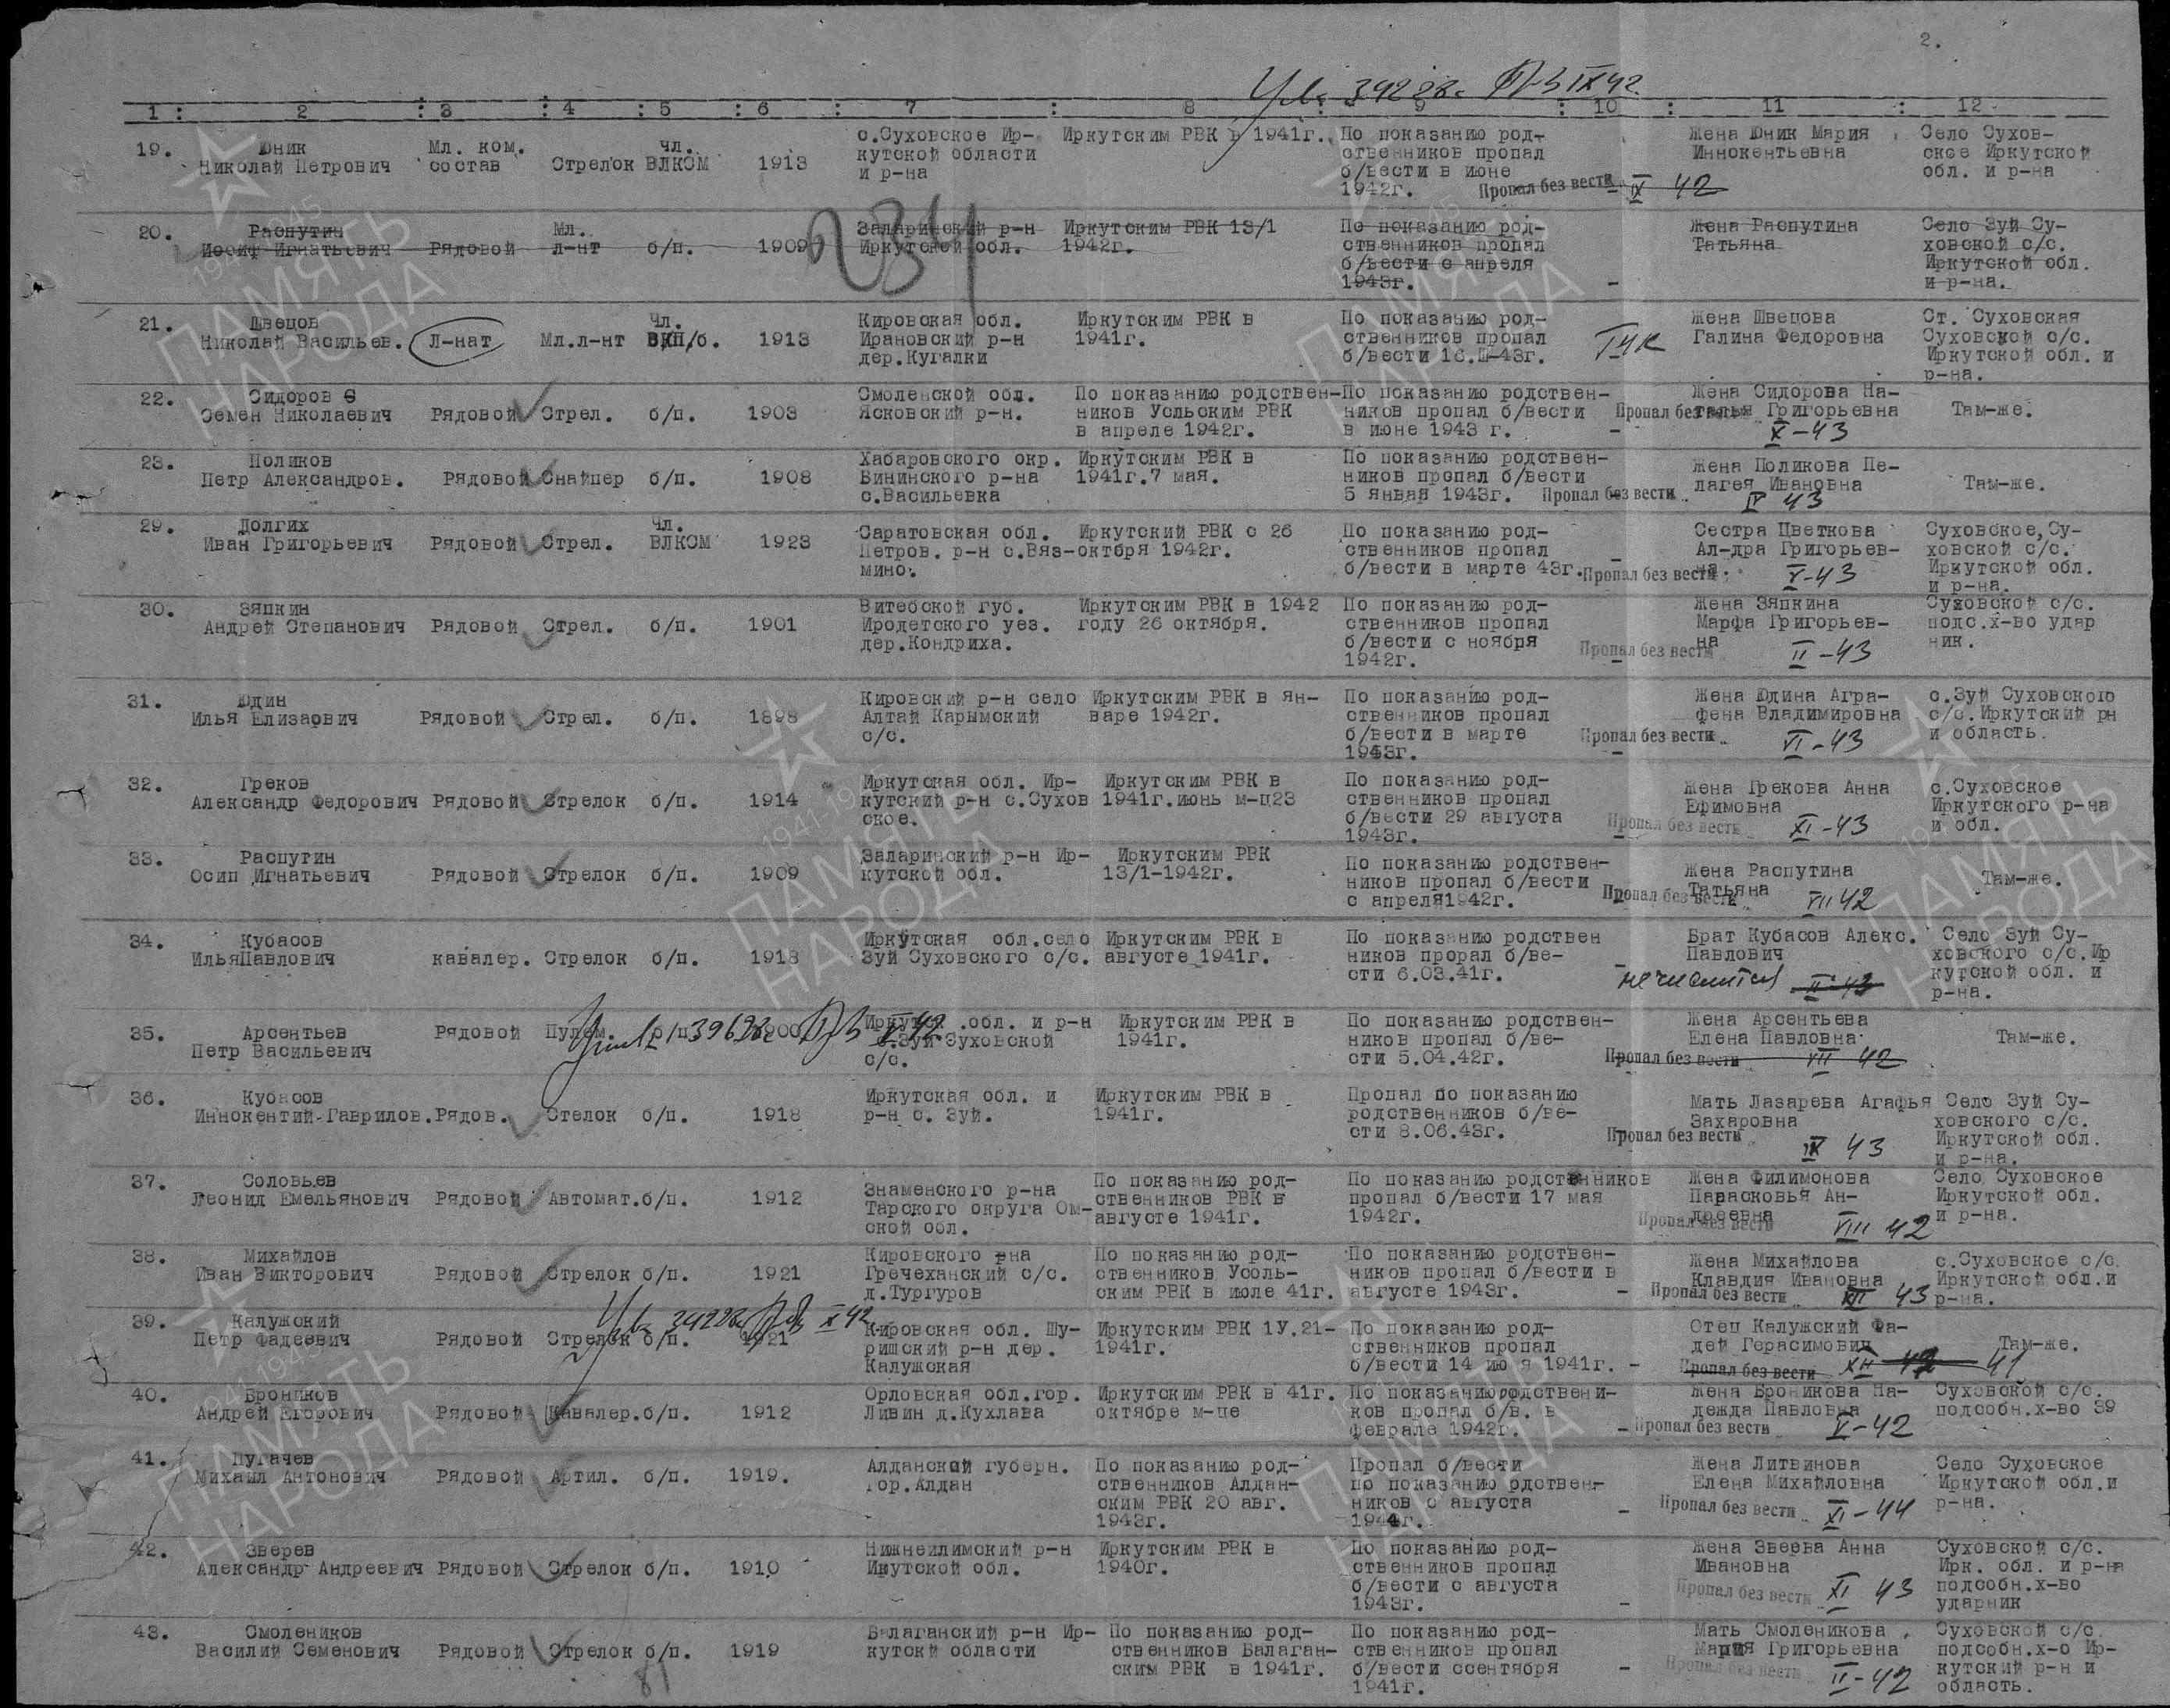 2.
1 : 2 : 3 : 4 : 5 : 6 : 7 : 8 : 9 : 10 : 11 : 12
19. Юник Николай Петрович Мл. ком. состав Стрелок чл. ВЛКОМ 1913 с.Суховское Ир- кутской области и р-на Иркутским РВК в 1941г. По показанию род- ственников пропал б/вести в июне 1942г. Пропал без вести IX 42 Жена Юник Мария Иннокентьевна Село Сухов- ское Иркутской обл. и р-на
20. Распутин Иосиф Игнатьевич Рядовой Мл. л-нт б/п. 1909 Заларинский р-н Иркутской обл. Иркутским РВК 13/1 1942г. По показанию род- ственников пропал б/вести с апреля 1943г. - Жена Распутина Татьяна Село Зуй Су- ховской с/с. Иркутской обл. и р-на.
21. Швецов Николай Васильев. Л-нат Мл.л-нт Чл. ВКП/б. 1913 Кировская обл. Ирановский р-н дер.Кугалки Иркутским РВК в 1941г. По показанию род- ственников пропал б/вести 16.II-43г. Жена Швецова Галина Федоровна Ст. Суховская Суховской с/с. Иркутской обл. и р-на.
22. Сидоров С Семен Николаевич Рядовой Стрел. б/п. 1903 Смоленской обл. Ясковский р-н. По показанию родствен- ников Усльским РВК в апреле 1942г. По показанию родствен- ников пропал б/вести в июне 1943 г. - Пропал без вести X-43 Жена Сидорова На- талья Григорьевна Там-же.
23. Поликов Петр Александров. Рядовой Снайпер б/п. 1908 Хабаровского окр. Вининского р-на с.Васильевка Иркутским РВК в 1941г.7 мая. По показанию родствен- ников пропал б/вести 5 января 1943г. Пропал без вести IV 43 Жена Поликова Пе- лагея Ивановна Там-же.
29. Долгих Иван Григорьевич Рядовой Стрел. Чл. ВЛКОМ 1923 Саратовская обл. Петров. р-н с.Вяз- мино. Иркутский РВК с 26 октбря 1942г. По показанию род- ственников пропал б/вести в марте 43г. - Пропал без вести V-43 Сестра Цветкова Ал-дра Григорьев- на. Суховское,Су- ховской с/с. Иркутской обл. и р-на.
30. Зяпкин Андрей Степанович Рядовой Стрел. б/п. 1901 Витебской губ. Иродетского уез. дер.Кондриха. Иркутским РВК в 1942 году 26 октября. По показанию род- ственников пропал б/вести с ноября 1942г. - Пропал без вести II-43 Жена Зяпкина Марфа Григорьев- на Суховской с/с. подс.х-во удар ник.
31. Юдин Илья Елизарвич Рядовой Стрел. б/п. 1898 Кировский р-н село Алтай Карымский с/с. Иркутским РВК в ян- варе 1942г. По показанию род- ственников пропал б/вести в марте 1943г. - Пропал без вести VI-43 Жена Юдина Агра- фена Владимировна с.Зуй Суховского с/с.Иркутский рн и область.
32. Греков Александр Федорович Рядовой Стрелок б/п. 1914 Иркутская обл. Ир- кутский р-н с.Сухов ское. Иркутским РВК в 1941г.июнь м-ц23 По показанию род- ственников пропал б/вести 29 августа 1943г. - Пропал без вести XI-43 Жена Грекова Анна Ефимовна с.Суховское Иркутского р-на и обл.
33. Распутин Осип Игнатьевич Рядовой Стрелок б/п. 1909 Заларинский р-н Ир- кутской обл. Иркутским РВК 13/1-1942г. По показанию родствен- ников пропал б/вести с апреля1942г. Пропал без вести VII 42 Жена Распутина Татьяна Там-же.
34. Кубасов ИльяПавлович кавалер. Стрелок б/п. 1918 Иркутская обл.село Зуй Суховского с/с. Иркутским РВК в августе 1941г. По показанию родствен ников прорал б/ве- сти 6.03.41г. - не числится II-43 Брат Кубасов Алекс. Павлович Село Зуй Су- ховского с/с.Ир кутской обл. и р-на.
35. Арсентьев Петр Васильевич Рядовой Пулем. б/п 1900 Иркутск .обл. и р-н с.Зуй Суховской с/с. Иркутским РВК в 1941г. По показанию родствен- ников пропал б/ве- сти 5.04.42г. Пропал без вести VII 42 Жена Арсентьева Елена Павловна Там-же.
36. Кубасов Иннокентий Гаврилов. Рядов. Стелок б/п. 1918 Иркутская обл. и р-н с. Зуй. Иркутским РВК в 1941г. Пропал по показанию родственников б/ве- сти 8.06.43г. Пропал без вести IX 43 Мать Лазарева Агафья Захаровна Село Зуй Су- ховского с/с. Иркутской обл. и р-на.
37. Соловьев Леонид Емельянович Рядовой Автомат. б/п. 1912 Знаменского р-на Тарского округа Ом- ской обл. По показанию род- ственников РВК в августе 1941г. По показанию родственников пропал б/вести 17 мая 1942г. Пропал без вести VIII 42 Жена Филимонова Парасковья Ан- дреевна Село Суховское Иркутской обл. и р-на.
38. Михайлов Иван Викторович Рядовой Стрелок б/п. 1921 Кировского рна Гречеханский с/с. д.Тургуров По показанию род- ственников Усоль- ским РВК в июле 41г. По показанию родствен- ников пропал б/вести в августе 1943г. - Пропал без вести XII 43 Жена Михайлова Клавдия Ивановна с.Суховское с/с. Иркутской обл.и р-на.
39. Калужский Петр Фадеевич Рядовой Стрелок б/п. 1921 Кировская обл. Шу- ришский р-н дер. Калужская Иркутским РВК 1У.21- 1941г. По показанию род- ственников пропал б/вести 14 ию я 1941г. - Пропал без вести XII 42 41 Отец Калужский Фа- дей Герасимович Там-же.
40. Броников Андрей Егорович Рядовой Кавалер. б/п. 1912 Орловская обл.гор. Ливин д.Кухлава Иркутским РВК в 41г. октябре м-це По показанию родствени- ков пропал б/в. в феврале 1942г. - Пропал без вести V-42 Жена Броникова На- дежда Павловна Суховской с/с. подсобн.х-во 39
41. Пугачев Михаил Антонович Рядовой Артил. б/п. 1919. Алданский губерн. гор.Алдан По показанию род- ственников Алдан- ским РВК 20 авг. 1943г. Пропал б/вести по показанию одствен- ников с августа 1944г. - Пропал без вести XI-44 Жена Литвинова Елена Михайловна Село Суховское Иркутской обл.и р-на.
42. Зверев Александр Андреевич Рядовой Стрелок б/п. 1910 Нижнеилимский р-н Икутской обл. Иркутским РВК в 1940г. По показанию род- ственников пропал б/вести с августа 1943г. - Пропал без вести XI 43 Жена Зверва Анна Ивановна Суховской с/с. Ирк. обл. и р-на подсобн.х-во ударник
43. Смолеников Василий Семенович Рядовой Стрелок б/п. 1919 Балаганский р-н Ир- кутскй области По показанию род- ственников Балаган- ским РВК в 1941г. По показанию род- ственников пропал б/вести ссентября 1941г. - Пропал без вести II-42 Мать Смоленикова Мария Григорьевна Суховской с/с. подсобн.х-о Ир- кутский р-н и область.
1941-1945
ПАМЯТЬ
НАРОДА